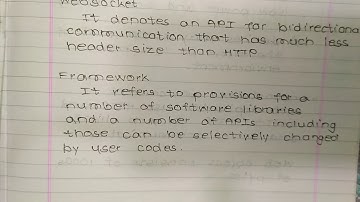 WebSocket
It denotes an API for bidirectiona
communication that has much less
header size than HTTP
Framework
It refers to provisions for a
number of software libraries
and a number of APIs including
those can be selectively changed
by user codes.